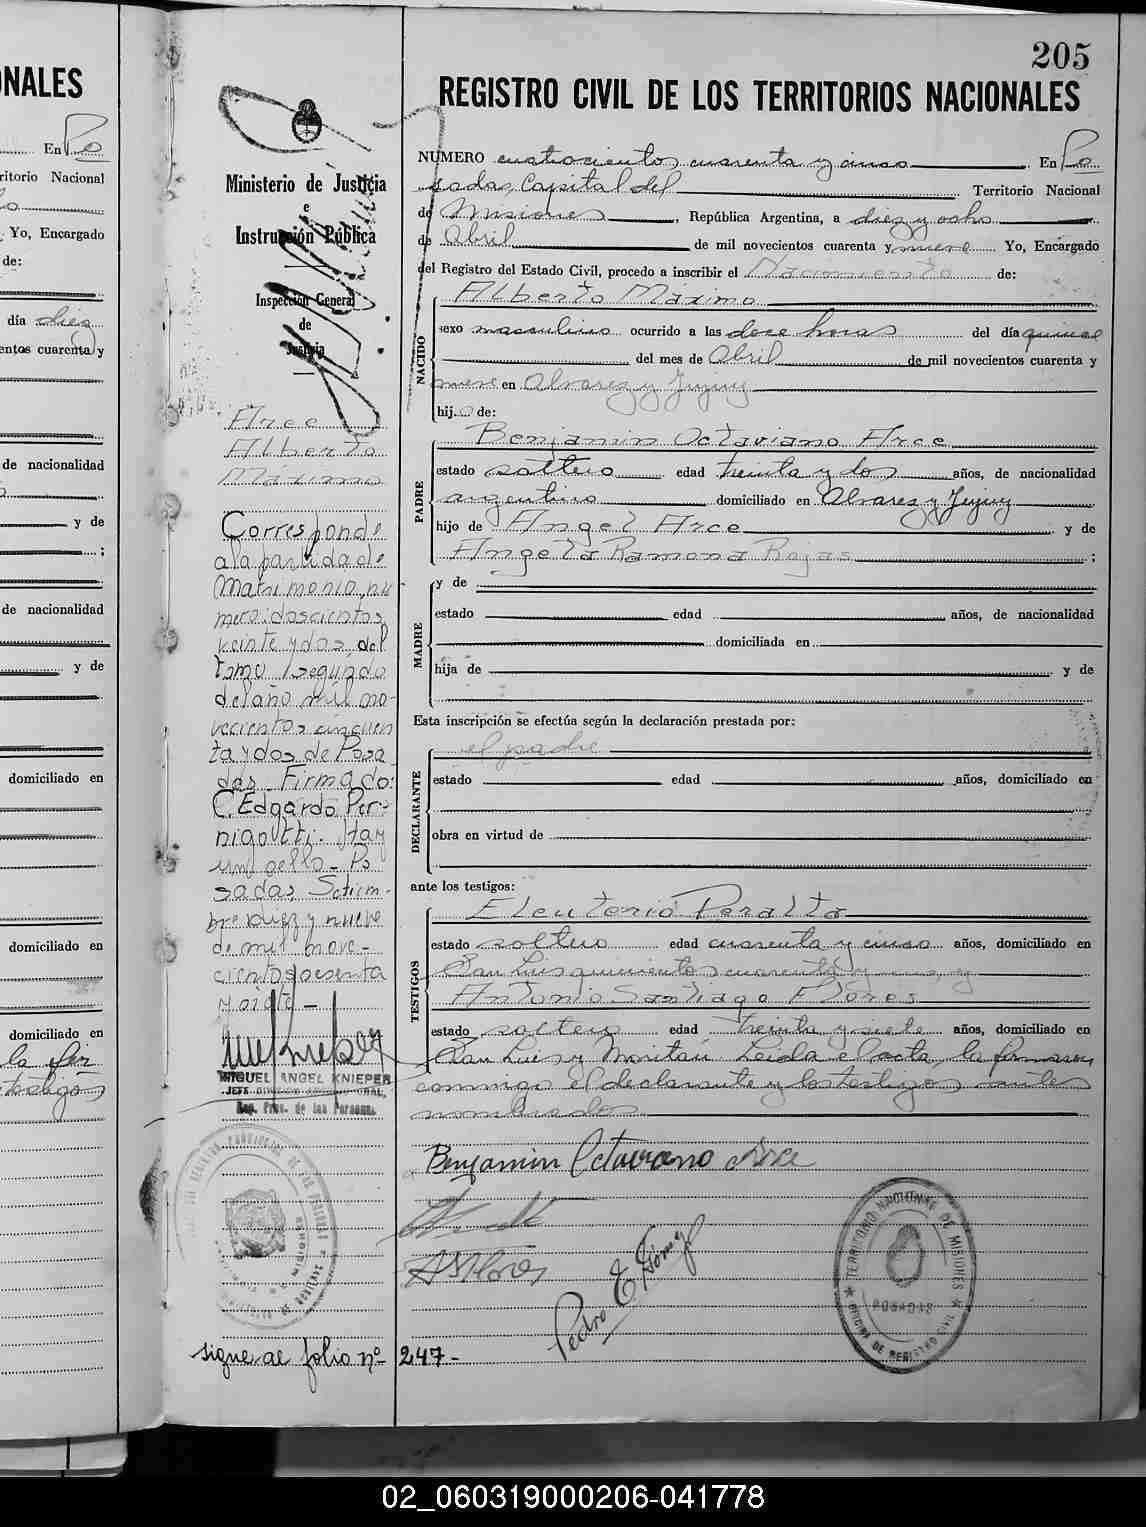 205
REGISTRO CIVIL DE LOS TERRITORIOS NACIONALES
Ministerio de Justicia
e
Instrucción Pública
Inspección General
de
Justicia
NUMERO cuatrocientos cuarenta y cinco. En Po
sadas, Capital del Territorio Nacional
de Misiones, República Argentina, a diez y ocho
de Abril de mil novecientos cuarenta y nueve Yo, Encargado
del Registro del Estado Civil, procedo a inscribir el Nacimiento de:
NACIDO
Alberto Máximo
sexo masculino ocurrido a las doce horas del día quince
del mes de Abril de mil novecientos cuarenta y
nueve en Alvarez y Jujuy
hijo de:
PADRE
Benjamin Octaviano Arce
estado soltero edad treinta y dos años, de nacionalidad
argentino domiciliado en Alvarez y Jujuy
hijo de Angel Arce y de
Angela Ramona Rojas ;
MADRE
y de
estado edad años, de nacionalidad
domiciliada en
hija de y de
Esta inscripción se efectúa según la declaración prestada por:
DECLARANTE
el padre
estado edad años, domiciliado en
obra en virtud de
ante los testigos:
TESTIGOS
Eleuterio Peralta
estado soltero edad cuarenta y cinco años, domiciliado en
San Luis quinientos cuarenta y y
Antonio Santiago Flores
estado soltero edad treinta y siete años, domiciliado en
San Luis y Leida el acta, la firmaron
conmigo el declarante y los testigos antes
nombrados
Benjamin Octaviano Arce
ASFlores
Pedro E. Gómez
TERRITORIO NACIONAL DE MISIONES
POSADAS
OFICINA DE REGISTRO CIVIL
Arce
Alberto
Máximo
Corresponde
a la partida de
Matrimonio, nú
mero: doscientos
veinte y dos, del
tomo segundo
del año mil no-
vecientos cincuen
ta y dos de Posa
das. Firmado:
C. Edgardo Per-
nigotti. Hay
un sello - Po
sadas, Setiem-
bre diez y nueve
de mil nove-
cientos sesenta
y siete -
MIGUEL ANGEL KNIEPER
Reg. Prov. de las Personas
sigue al folio nº 247-
ONALES
En Po
ritorio Nacional
Yo, Encargado
de:
día diez
entos cuarenta y
de nacionalidad
y de
;
de nacionalidad
y de
domiciliado en
domiciliado en
domiciliado en
la fir
testigos
02_060319000206-041778